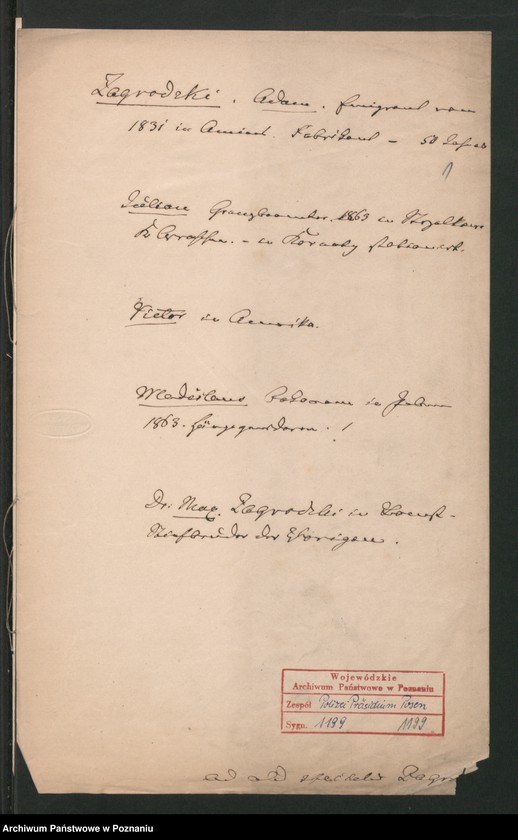 Zagrodzki. Adam. Emigrant von
1831 in Amient. Fabrikant – 50 Jahre
1
Julian Grenzbeamter. 1863 in Strzelkowo
Kr Wreschen. – in stationirt.
Victor in Amerika.
Wladislaus in Jahre
1863. !
Dr. Max. Zagrodzki in
Stiefbruder der Vorigen.
Wojewódzkie
Archiwum Państwowe w Poznaniu
Zespół Polizei Präsidium Posen
Sygn. 1199 1199
ad Zagrod
Archiwum Państwowe w Poznaniu